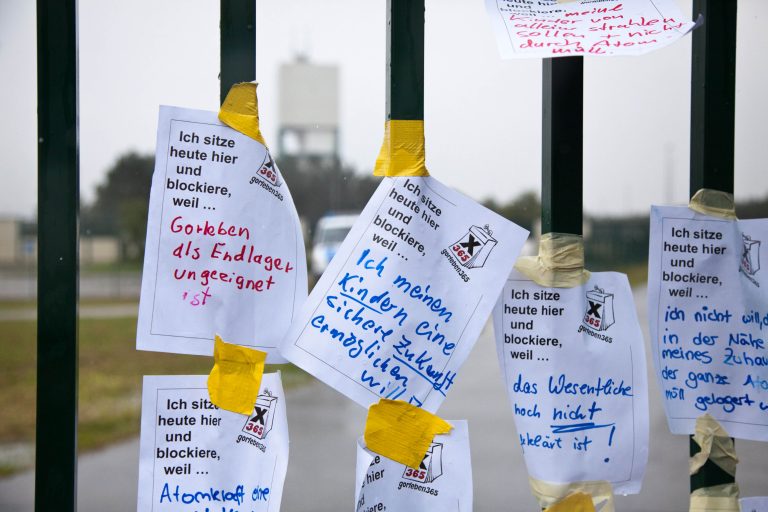 blockiere,
weil ... meine
Kinder von
allein strahlen
sollen + nicht
durch Atom
müll.
Ich sitze
heute hier
und
blockiere,
weil ...
X
365
gorleben365
Gorleben
als Endlager
ungeeignet
ist
Ich sitze
heute hier
und
blockiere,
weil ...
X
365
gorleben365
Ich meinen
Kindern eine
sichere Zukunft
ermöglichen
will
Ich sitze
heute hier
und
blockiere,
weil ...
X
365
gorleben365
das Wesentliche
noch nicht
geklärt ist!
Ich sitze
heute hier
und
blockiere,
weil ...
X
ich nicht will, d
in der Nähe
meines Zuhau
der ganze Ato
müll gelagert w
Ich sitze
heute hier
und
blockiere,
weil ...
X
365
gorleben365
Atomkraft eine
Ich
heute
und
blockiere,
weil ...
X
365
gorleben365